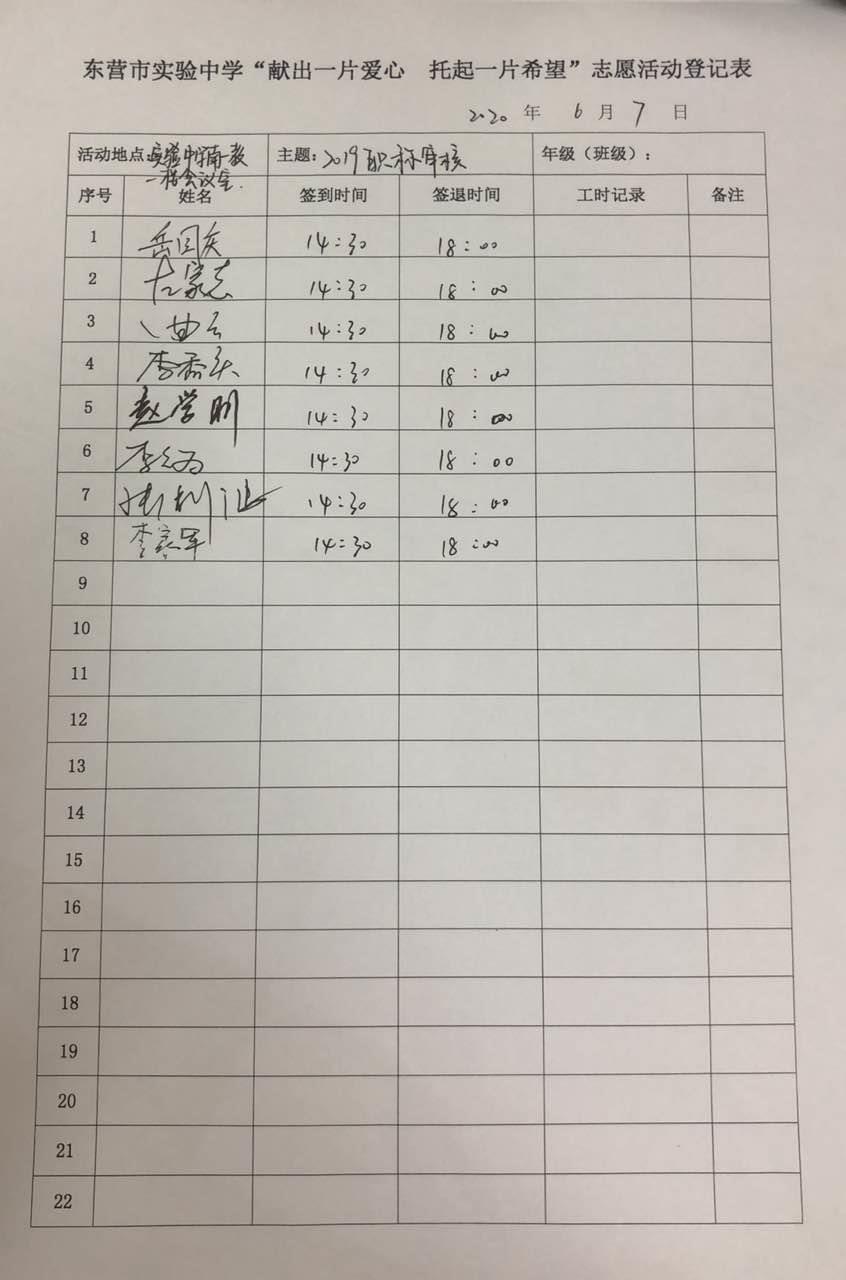 东营市实验中学“献出一片爱心 托起一片希望”志愿活动登记表
2020 年 6 月 7 日
活动地点:实验中学南教一楼会议室. 主题:2019职称审核 年级(班级):
序号 姓名 签到时间 签退时间 工时记录 备注
1 岳国庆 14:30 18:00
2 14:30 18:00
3 14:30 18:00
4 14:30 18:00
5 赵学明 14:30 18:00
6 14:30 18:00
7 14:30 18:00
8 14:30 18:00
9
10
11
12
13
14
15
16
17
18
19
20
21
22